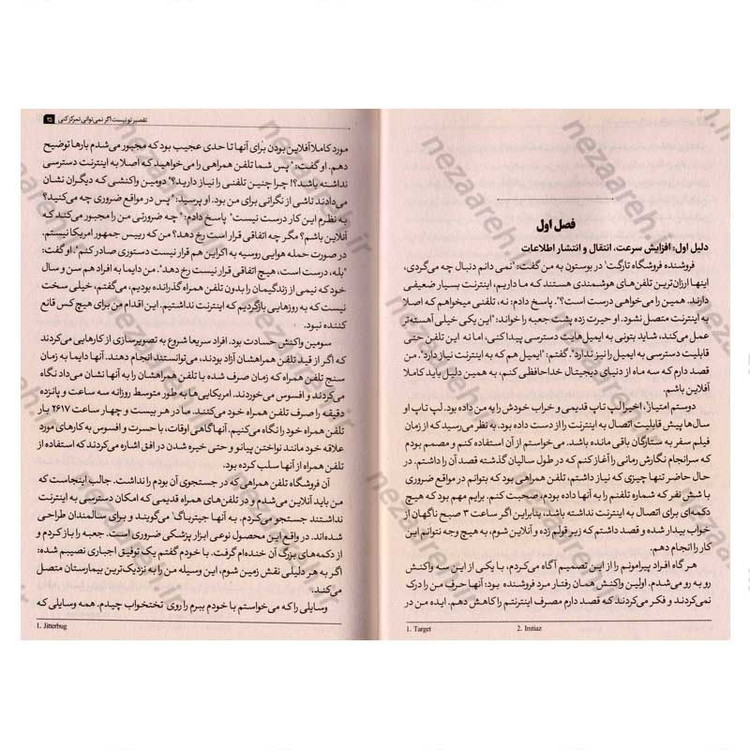 فصل اول
دلیل اول: افزایش سرعت، انتقال و انتشار اطلاعات
فروشنده فروشگاه تارگت¹ در بوستون به من گفت: "نمی دانم دنبال چه می‌گردی،
اینها ارزان‌ترین تلفن‌های هوشمندی هستند که ما داریم، اینترنت بسیار ضعیفی
دارند. همین را می‌خواهی درست است؟". پاسخ دادم: نه، تلفنی میخواهم که اصلا
به اینترنت متصل نشود. او حیرت زده پشت جعبه را خواند: "این یکی خیلی آهسته‌تر
عمل می‌کند، شاید بتونی به ایمیل‌هایت دسترسی پیدا کنی، اما نه این تلفن حتی
قابلیت دسترسی به ایمیل را نیز ندارد". گفتم: "ایمیل هم که به اینترنت نیاز دارد". من
قصد دارم که سه ماه از دنیای دیجیتال خداحافظی کنم، به همین دلیل باید کاملا
آفلاین باشم.
دوستم امتیاز²، اخیرا لپ تاپ قدیمی و خراب خودش را به من داده بود. لپ تاپ او
سال‌ها پیش قابلیت اتصال به اینترنت را از دست داده بود. به نظر می‌رسید که از زمان
فیلم سفر به ستارگان باقی مانده باشد. می‌خواستم از آن استفاده کنم و مصمم بودم
که سرانجام نگارش رمانی را آغاز کنم که در طول سالیان گذشته قصد آن را داشتم. در
حال حاضر تنها چیزی که نیاز داشتم، تلفن همراهی بود که بتوانم در مواقع ضروری
با شش نفر که شماره تلفنم را به آنها داده بودم، صحبت کنم. برایم مهم بود که هیچ
دکمه‌ای برای اتصال به اینترنت نداشته باشد، بنابراین اگر ساعت ۳ صبح ناگهان از
خواب بیدار شده و قصد داشتم که زیر قولم زده و آنلاین شوم، به هیچ وجه نتوانم این
کار را انجام دهم.
هر گاه افراد پیرامونم را از این تصمیم آگاه می‌کردم، با یکی از این سه واکنش
رو به رو می‌شدم. اولین واکنش همان رفتار مرد فروشنده بود: آنها حرف من را درک
نمی‌کردند و فکر می‌کردند که قصد دارم مصرف اینترنتم را کاهش دهم. ایده من در
1. Target 2. Imtiaz
تقصیر تو نیست اگر نمی‌توانی تمرکز کنی ۲۵
مورد کاملا آفلاین بودن برای آنها تا حدی عجیب بود که مجبور می‌شدم بارها توضیح
دهم. او گفت: "پس شما تلفن همراهی را می‌خواهید که اصلا به اینترنت دسترسی
نداشته باشد؟! چرا چنین تلفنی را نیاز دارید؟" دومین واکنشی که دیگران نشان
می‌دادند ناشی از نگرانی برای من بود. او پرسید: "پس در مواقع ضروری چه می‌کنید؟
به نظرم این کار درست نیست" پاسخ دادم: "چه ضرورتی من را مجبور می‌کند که
آنلاین باشم؟ مگر چه اتفاقی قرار است رخ دهد؟ من که رییس جمهور امریکا نیستم.
در صورت حمله هوایی روسیه به اکراین هم قرار نیست دستوری صادر کنم". او گفت:
"بله، درست است، هیچ اتفاقی قرار نیست رخ دهد". من دایما به افراد هم سن و سال
خود که نیمی از زندگیمان را بدون تلفن همراه گذرانده بودیم، می‌گفتم، خیلی سخت
نیست که به روزهایی بازگردیم که اینترنت نداشتیم. این اقدام من برای هیچ کس قانع
کننده نبود.
سومین واکنش حسادت بود. افراد سریعا شروع به تصویرسازی از کارهایی می‌کردند
که اگر از قید تلفن همراهشان آزاد بودند، می‌توانستند انجام دهند. آنها دایما به زمان
سنج تلفن همراه که زمان صرف شده با تلفن همراهشان را به آنها نشان می‌داد نگاه
می‌کردند و افسوس می‌خوردند. آمریکایی‌ها به طور متوسط روزانه سه ساعت و پانزده
دقیقه را صرف تلفن همراه خود می‌کنند. ما در هر بیست و چهار ساعت ۲۶۱۷ بار
تلفن همراه خود را نگاه می‌کنیم. آنها گاهی اوقات، با حسرت و افسوس به کارهای مورد
علاقه خود مانند نواختن پیانو و حتی خیره شدن در افق اشاره می‌کردند که استفاده از
تلفن همراه از آنها سلب کرده بود.
آن فروشگاه تلفن همراهی که در جستجوی آن بودم را نداشت. جالب اینجاست که
من باید آنلاین می‌شدم و در تلفن‌های همراه قدیمی که امکان دسترسی به اینترنت
نداشتند جستجو می‌کردم. به آنها جیترباگ¹ می‌گویند و برای سالمندان طراحی
شده‌اند. در واقع این محصول نوعی ابزار پزشکی ضروری است. جعبه را باز کردم و
از دکمه‌های بزرگ آن خنده‌ام گرفت. با خودم گفتم یک توفیق اجباری نصیبم شده:
اگر به هر دلیلی نقش زمین شوم، این وسیله من را به نزدیک‌ترین بیمارستان متصل
می‌کند.
وسایلی را که می‌خواستم با خودم ببرم را روی تختخواب چیدم. همه وسایلی که
1. Jitterbug
nezaareh.ir